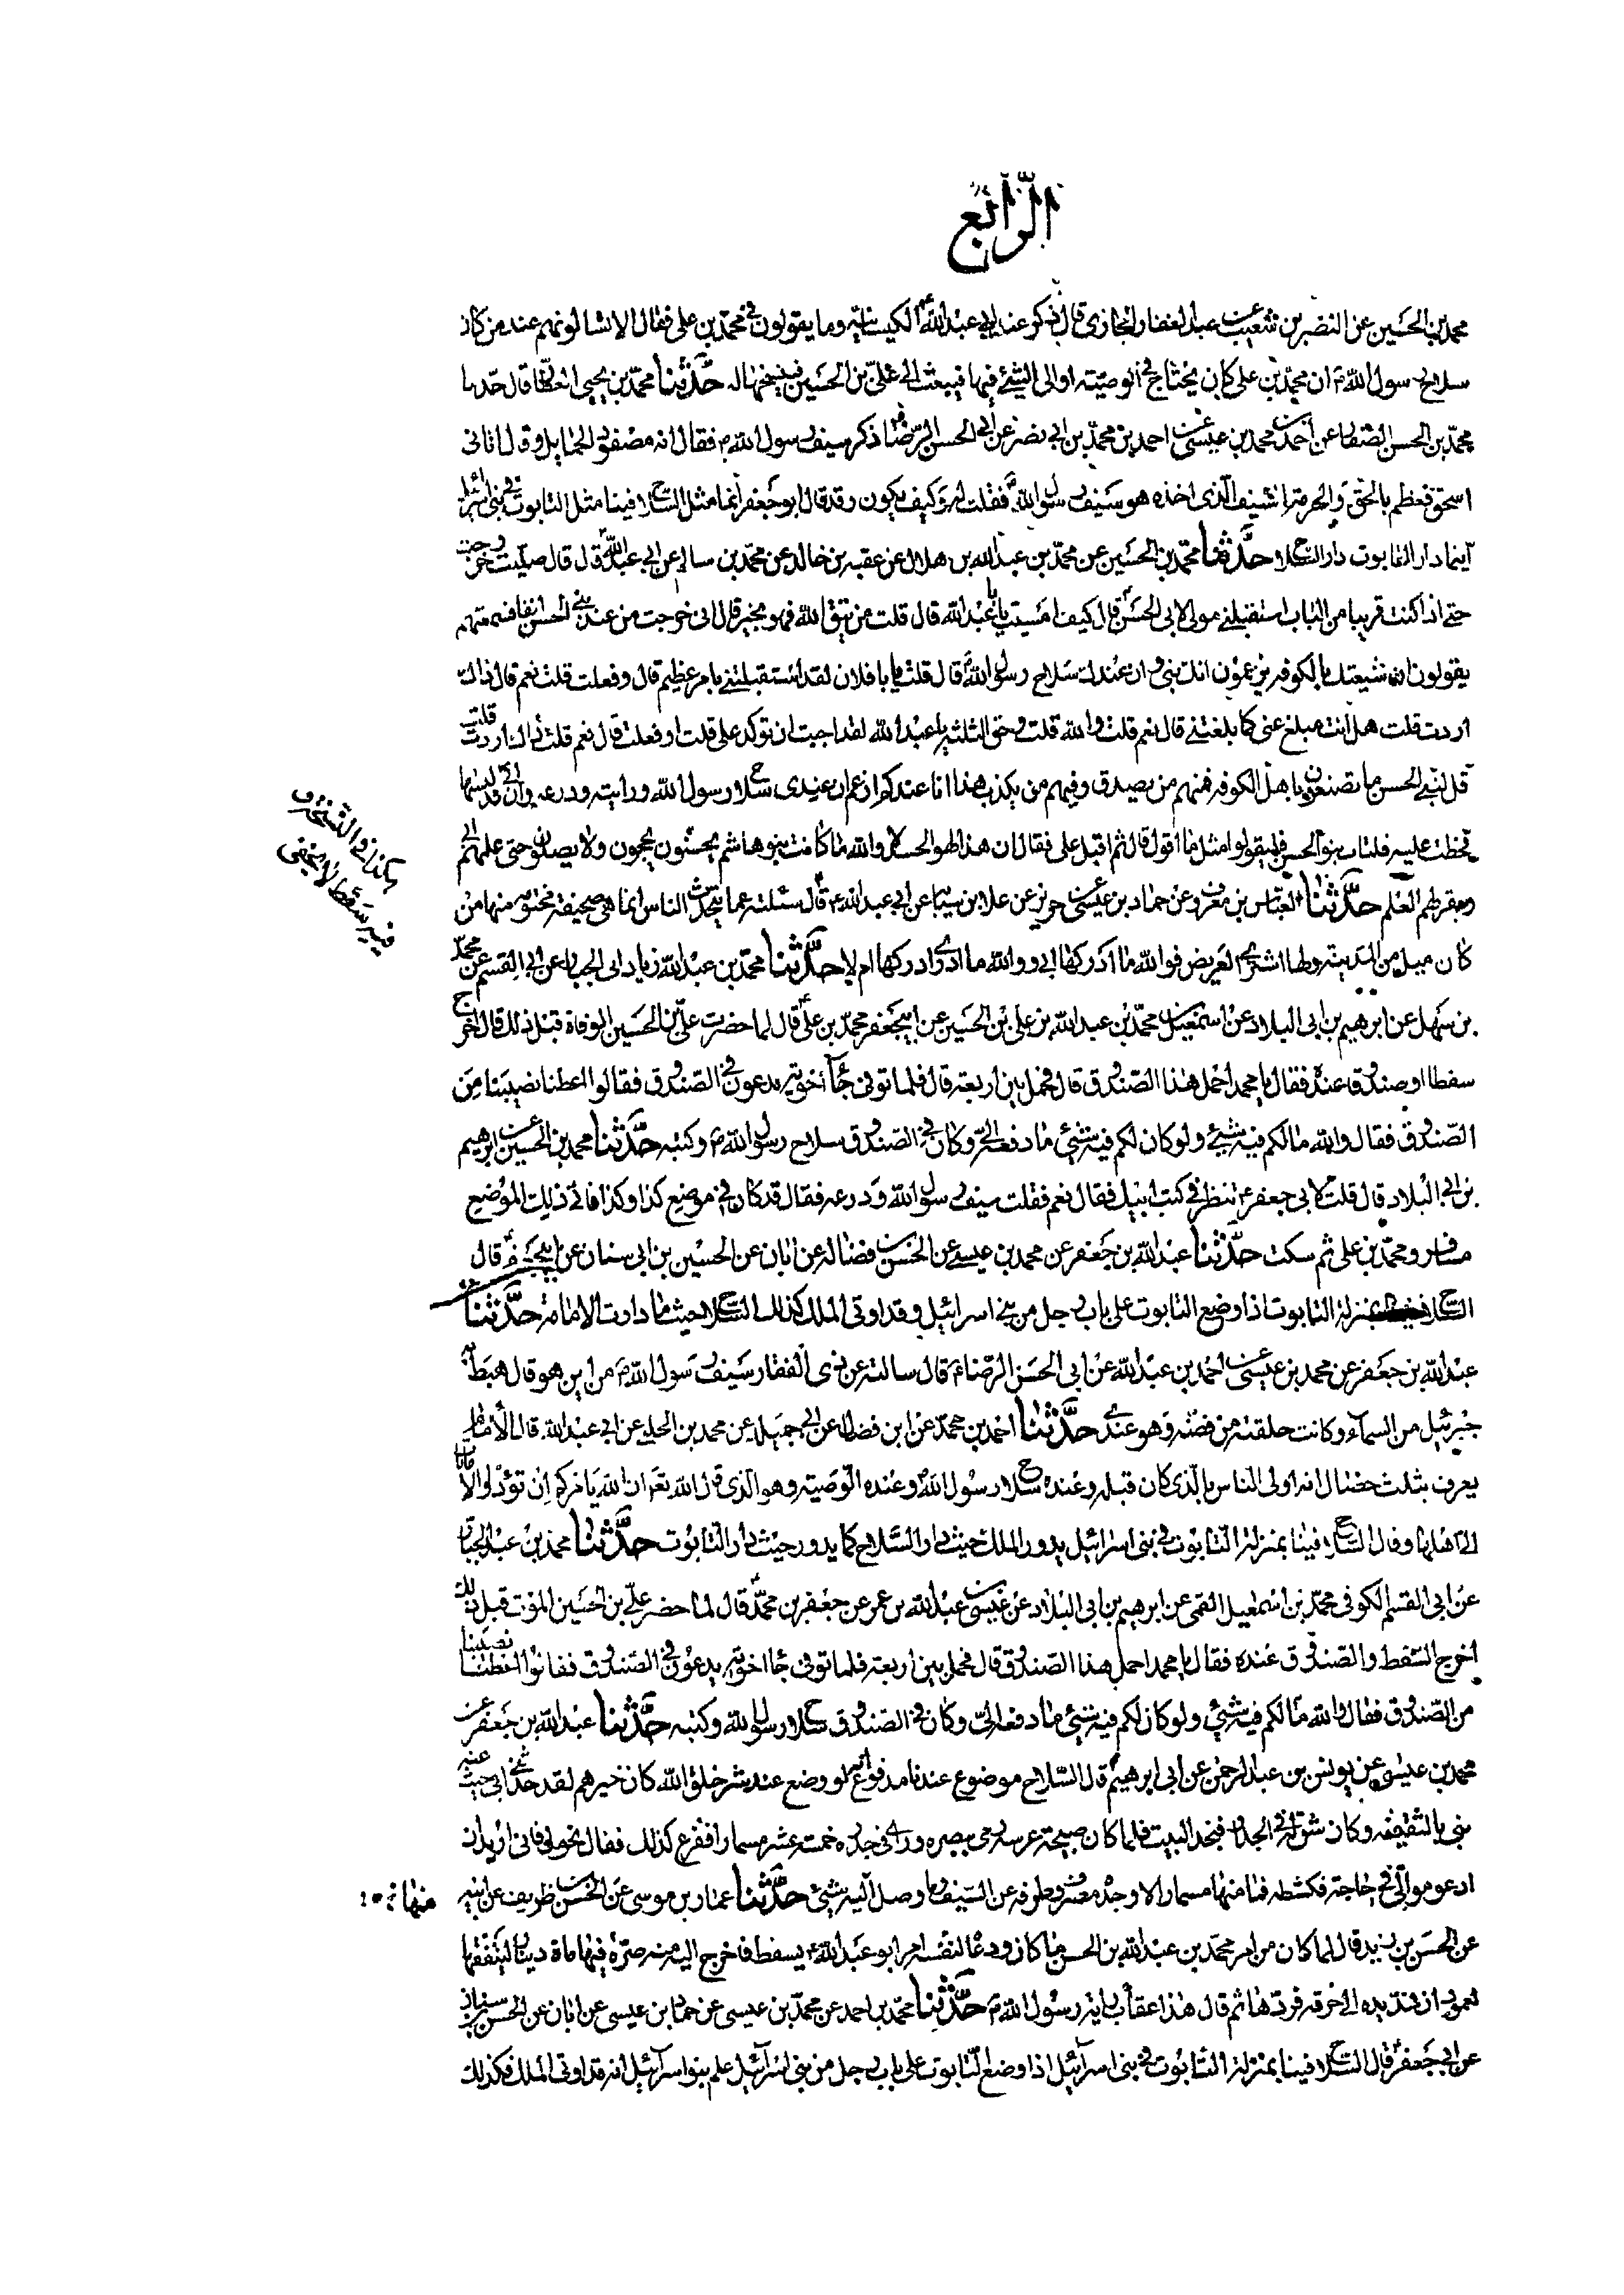 الرابع
محمد بن الحسين عن النضر بن شعيب عن عبد الغفار الجازى قال ذكر عند ابى عبد الله ع الكيسانية وما يقولون فى محمد بن على فقال الا تسالونهم عند من كان
سلاح رسول الله ص ان محمد بن على كان يحتاج فى الوصية او الى الشئ فيها فيبعث الى على بن الحسين فينسخها له حدثنا محمد بن يحيى العطار قال حدثنا
محمد بن الحسن الصفار عن احمد بن محمد بن عيسى عن احمد بن محمد بن ابى نصر عن ابى الحسن الرضا ع ذكر سيف رسول الله ص فقال انه مصفود الحمايل وقال اتانى
اسحق فعظم بالحق والحرمة السيف الذى اخذه هو سيف رسول الله ص فقلت له وكيف يكون وقد قال ابو جعفر انما مثل السلاح فينا مثل التابوت فى بنى اسرائيل
اينما دار التابوت دار السلاح حدثنا محمد بن الحسين عن محمد بن عبد الله بن هلال عن عقبة بن خالد عن محمد بن سالم عن ابى عبد الله ع قال قال صليت وخرجت
حتى اذا كنت قريبا من الباب استقبلنى مولى لبنى الحسن قال كيف امسيت يا با عبد الله قال قلت من يتق الله فهو بخير قال انى خرجت من عند بنى الحسن انفا فسمعتهم
يقولون ان شيعتك بالكوفة يزعمون انك نبى وان عندك سلاح رسول الله ص قال قلت يا با فلان لقد استقبلتنى بامر عظيم قال وفعلت قلت نعم قال ذاك
اردت قلت هل انت مبلغ عنى كما بلغتنى قال نعم قلت والله قلت وحق الثلثة يا با عبد الله لقد احببت ان توكد على قلت او فعلت قال نعم قلت ذاك اردت قلت
قل لبنى الحسن ما تصنعون باهل الكوفة فمنهم من يصدق وفيهم من يكذب هذا انا عندكم ازعم ان عندى سلاح رسول الله ورايته ودرعه وان ابى قد لبسها
فخطت عليه فليات بنو الحسن فليقولوا مثل ما اقول قال ثم اقبل على فقال ان هذا لهو الحسد لا والله ما كانت بنو هاشم يحسنون يحجون ولا يصلون حتى علمهم ابى
وبقر لهم العلم حدثنا العباس بن معروف عن حماد بن عيسى عن حريز عن علا بن سيابة عن ابى عبد الله ع قال سئلته عما يتحدث الناس انما هى صحيفة مختومة منها من
كان ميل من المدينة ولها اشرج العريض فوالله ما ادركها ابى ووالله ما ادرى ادركها ام لا حدثنا محمد بن عبد الله زياد ابى الجبار عن ابى القسم عن محمد
بن سهل عن ابرهيم بن ابى البلاد عن اسمعيل بن محمد بن عبد الله بن على بن الحسين عن ابى جعفر محمد بن على ع قال لما حضرت على بن الحسين الوفاة قبل ذلك قال اخرج
سفطا او صندوقا عنده فقال يا محمد احمل هذا الصندوق قال فحمل بين اربعة قال فلما توفى جاء اخوته يدعون فى الصندوق فقالوا اعطنا نصيبنا من
الصندوق فقال والله ما لكم فيه شئ ولو كان لكم فيه شئ ما دفعه الى وكان فى الصندوق سلاح رسول الله ص وكتبه حدثنا محمد بن الحسين عن ابرهيم
بن ابى البلاد قال قلت لابى جعفر ع تنظر فى كتب ابيك فقال نعم فقلت سيف رسول الله ودرعه فقال قد كان فى موضع كذا وكذا فاتى ذلك الموضع
مسافر ومحمد بن على ثم سكت حدثنا عبد الله بن جعفر عن محمد بن عيسى عن الحسن بن فضالة عن ابان عن الحسين بن ابى سنان عن ابى جعفر ع قال
السلاح فينا بمنزلة التابوت اذا وضع التابوت على باب رجل من بنى اسرائيل وقد اوتى الملك كذلك السلاح حيث ما دارت الامامة حدثنا
عبد الله بن جعفر عن محمد بن عيسى عن احمد بن عبد الله عن ابى الحسن الرضا ع قال سالته عن ذى الفقار سيف رسول الله ص من اين هو قال هبط به
جبرئيل من السماء وكانت حلقته من فضة وهو عندى حدثنا احمد بن محمد عن ابن فضال عن ابى جميلة عن محمد بن الحلبى عن ابى عبد الله قال الامام
يعرف بثلث خصال انه اولى الناس بالذى كان قبله وعنده سلاح رسول الله وعنده الوصية وهو الذى قال الله تع ان الله يامركم ان تؤدوا الامانات
الى اهلها وقال السلاح فينا بمنزلة التابوت فى بنى اسرائيل يدور الملك حيث دار السلاح كما يدور حيث دار التابوت حدثنا محمد بن عبد الجبار
عن ابى القسم الكوفى محمد بن اسمعيل القمى عن ابرهيم بن ابى البلاد عن عيسى بن عبد الله بن عمر عن جعفر بن محمد ع قال لما حضر على بن الحسين الموت قبل ذلك
اخرج السفط والصندوق عنده فقال يا محمد احمل هذا الصندوق قال فحمل بين اربعة فلما توفى جاء اخوته يدعون فى الصندوق فقالوا اعطنا نصيبنا
من الصندوق فقال والله ما لكم فيه شئ ولو كان لكم فيه شئ ما دفعه الى وكان فى الصندوق سلاح رسول الله وكتبه حدثنا عبد الله بن جعفر عن
محمد بن عيسى عن يونس بن عبد الرحمن عن ابى ابرهيم ع قال السلاح موضوع عندنا مدفوع عنه لو وضع عند شر خلق الله كان خيرهم لقد حدثنى ابى حيث
بنى بالثقفية وكان شق له فى الجدار فنجد البيت فلما كان صبيحة عرسه رمى ببصره وراى فى جدره خمسة عشر مسمارا ففزع كذلك فقال تحولى فانى اريد ان
ادعو موالى فى حاجة فكشطه فما منها مسمار الا وجده مصرفا طرفه عن السيف وما وصل اليه شئ حدثنا عمار بن موسى عن الحسن بن ظريف عن ابيه
منها
عن الحسن بن زيد قال لما كان من امر محمد بن عبد الله بن الحسن ما كان ودعا لنفسه امر ابو عبد الله ع بسفط فاخرج اليه منه صرة فيها ماة دينار لينفقها
بعمودان فمد يده الى خرقة فردها ثم قال هذا عقاب راية رسول الله ص حدثنا محمد بن احمد عن محمد بن عيسى عن حماد بن عيسى عن ابان عن الحسن بن سنان
عن ابى جعفر ع قال السلاح فينا بمنزلة التابوت فى بنى اسرائيل اذا وضع التابوت على باب رجل من بنى اسرائيل علم بنو اسرائيل انه قد اوتى الملك فكذلك
هكذا فى النسخ
فيه سقط لا يخفى